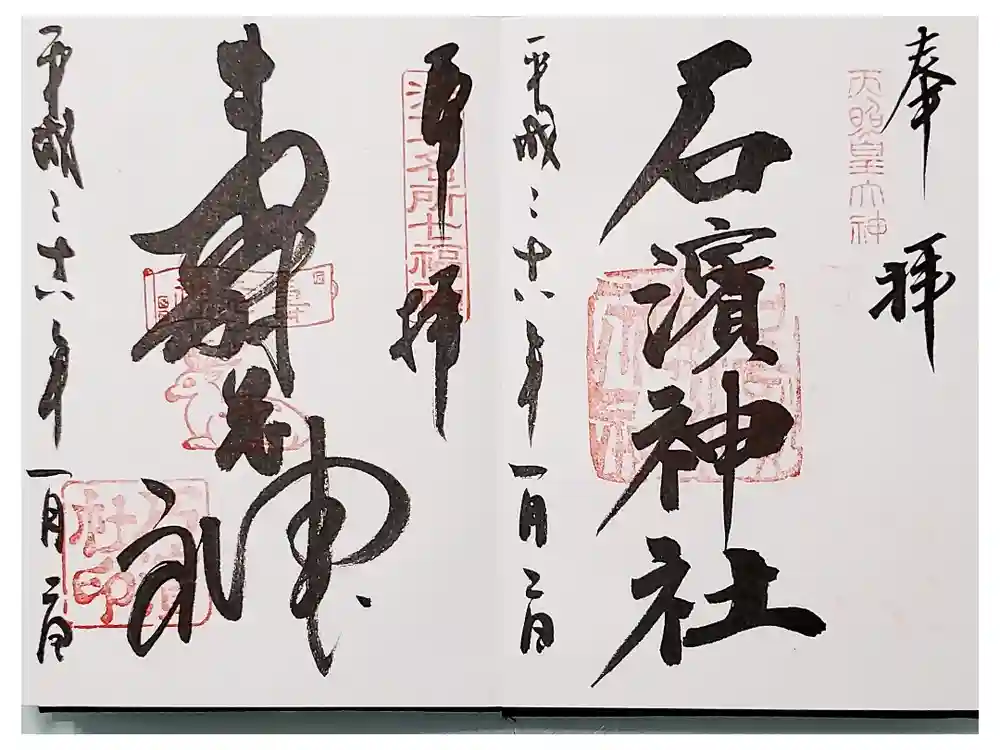 奉拝
天照皇大神
石濱神社
平成二十六年
一月二日
奉拝
名所七福
壽老神
平成二十六年
一月二日
社印